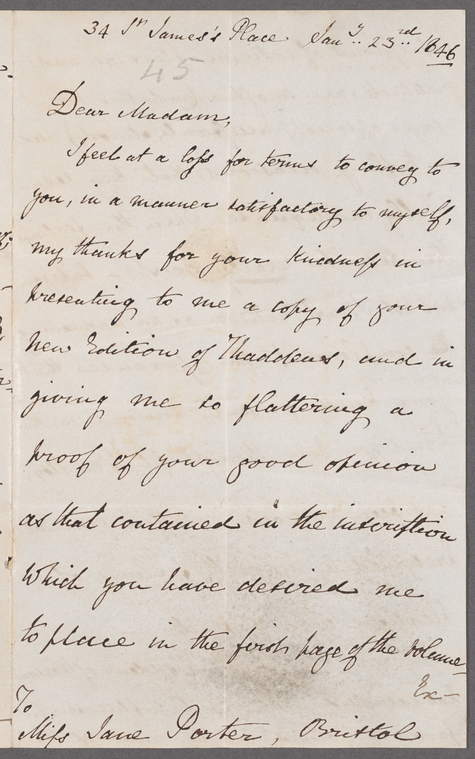 34 St James's Place Jany. 23rd 1846
45
Dear Madam,
I feel at a loss for terms to convey to
you, in a manner satisfactory to myself,
my thanks for your kindness in
presenting to me a copy of your
New Edition of Thaddeus, and in
giving me so flattering a
proof of your good opinion
as that contained in the inscription
which you have desired me
to place in the first page of the volume
Ex-
To
Miss Jane Porter, Bristol